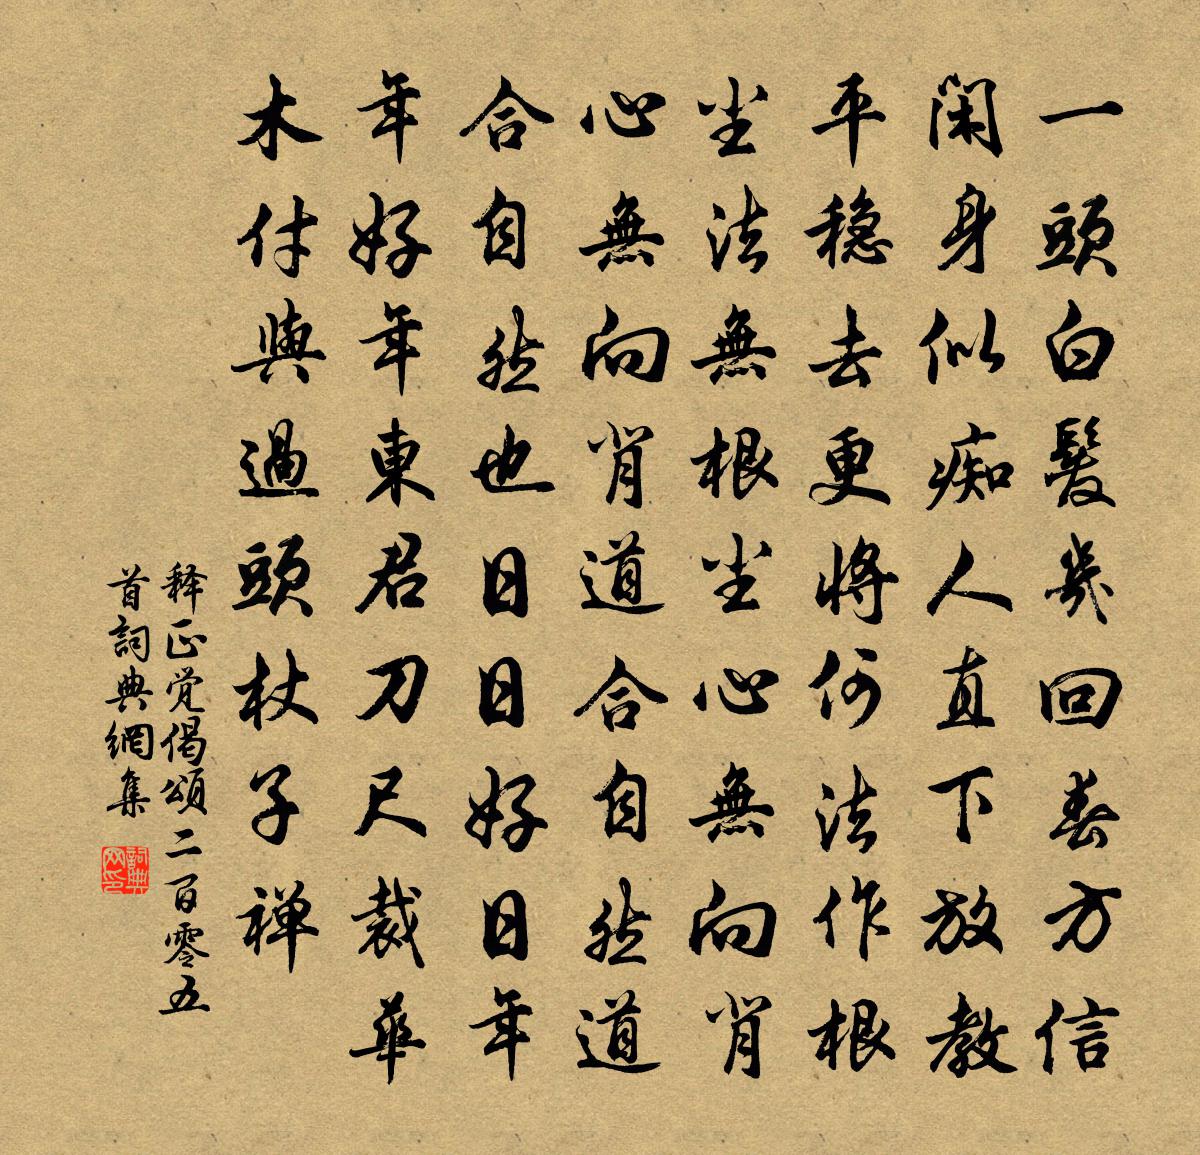 一頭白髮幾回春方信
閑身似痴人直下放教
平穏去更將何法作根
塵法無根塵心無向背
心無向背道合自然道
合自然也日日好日年
年好年東君刀尺裁華
木付與過頭杖子禅
释正覚偈頌二百零五
首詞典網集
詞典网印